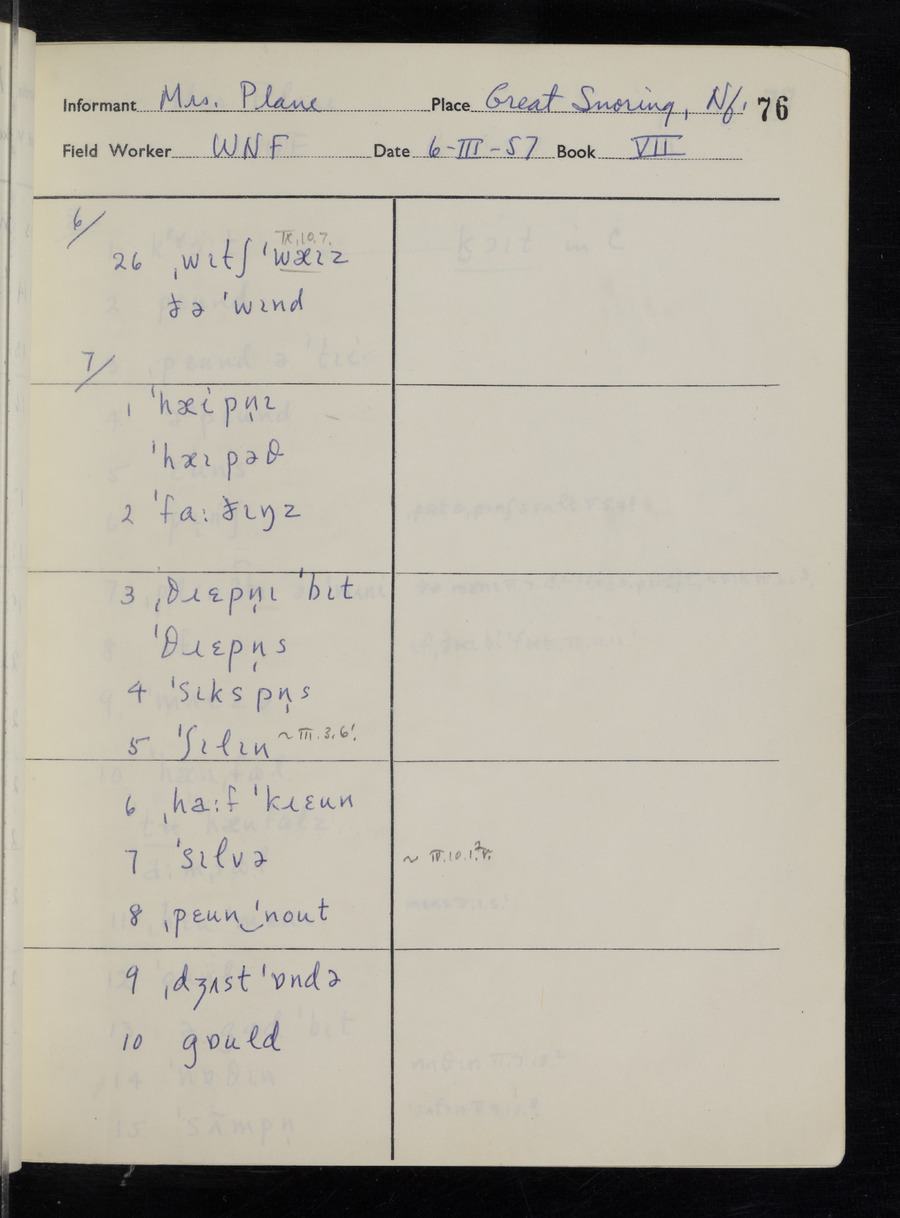 Informant Mrs. Plane Place Great Snoring, Nf. 76
Field Worker WNF Date 6-III-57 Book VII
6/
IX.10.7.
26 ˌwɪtʃ ˈwæɪz
ðə ˈwɪnd
7/
1 ˈhæipn̩ɪ
ˈhæɪpəθ
2 ˈfaːðɪŋz
3 ˌθɹɛpn̩ɪ ˈbɪt
ˈθɹɛpn̩s
4 ˈsɪkspn̩s
5 ˈʃɪlɪn ~ III.3.6!
6 ˌhaːf ˈkɹɛun
7 ˈsɪlvə
8 ˌpɛun‿ˈnout
9 ˌdʒʌst ˈɒndə
10 gɒuld